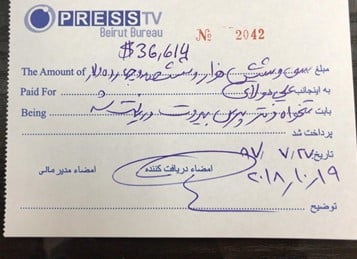 PRESSTV
Beirut Bureau
№ 2042
$36,614
The Amount of سی و شش هزار و ششصد و چهارده دلار مبلغ
Paid For علی به اینجانب
Being تنخواه دفتر پرس بیروت دریافت شد بابت
پرداخت شد
تاریخ ۹۷/۷/۲۷
۲۰۱۸,۱۰,۱۹
امضاء دریافت کننده امضاء مدیر مالی
توضیح